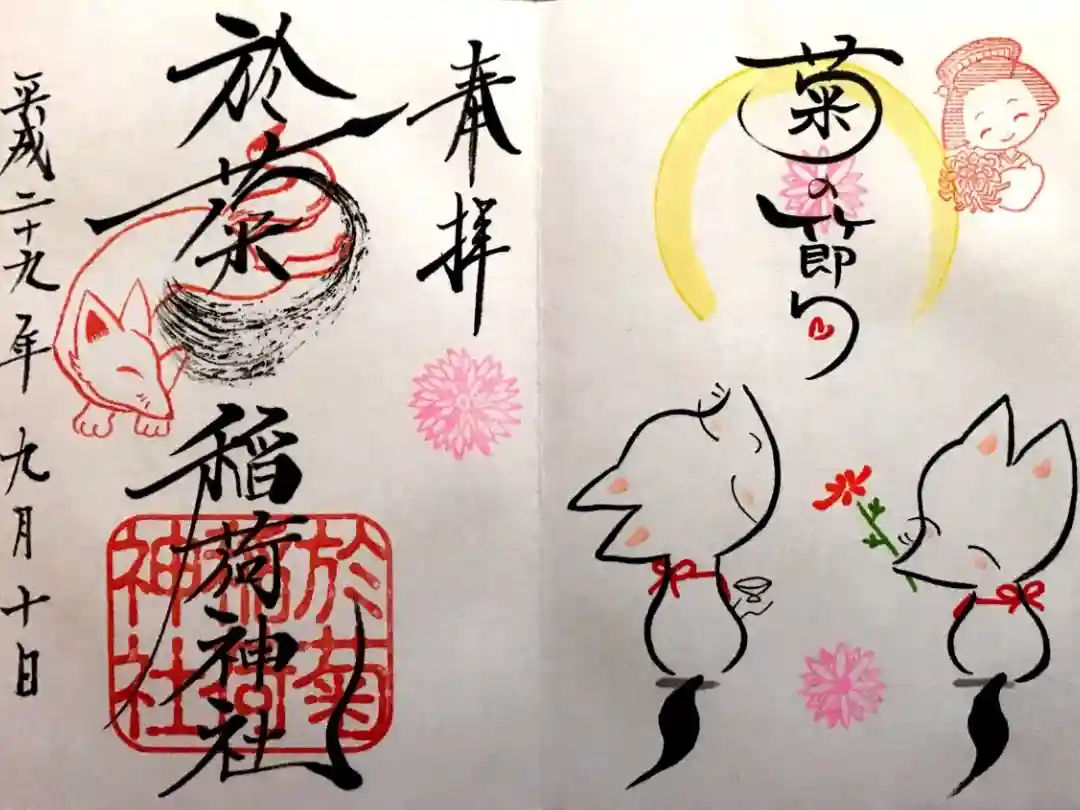 菊の節句
奉拝
於菊稲荷神社
平成二十九年九月十日
於菊
稲荷
神社